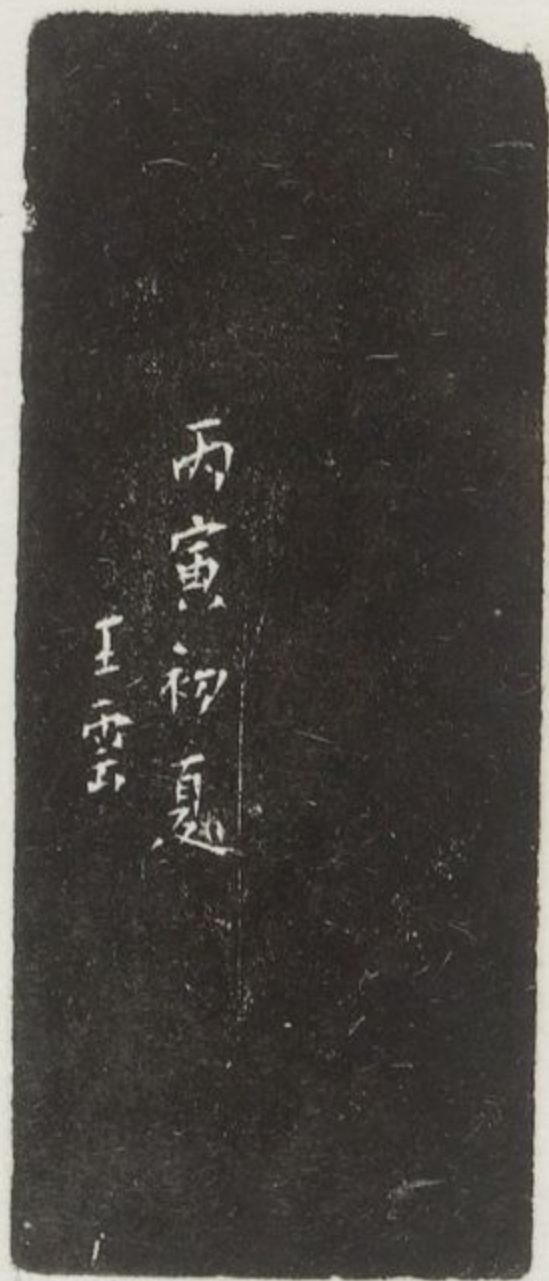 丙寅初夏
王雲